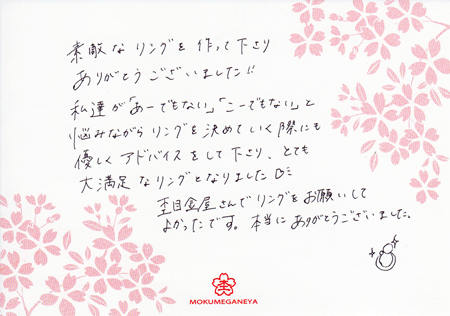 素敵なリングを作って下さり
ありがとうございました!!
私達が「あーでもない」「こーでもない」と
悩みながらリングを決めていく際にも
優しくアドバイスをして下さり、とても
大満足なリングとなりました
杢目金屋さんでリングをお願いして
よかったです。本当にありがとうございました。
杢
MOKUMEGANEYA